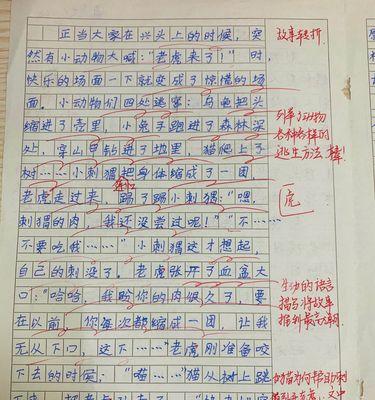 正当大家在兴头上的时候，突
然有小动物大喊："老虎来了！"时，
快乐的场面一下就变成了惊慌的场
面。小动物们四处逃窜：乌龟把头
缩进了壳里，小兔子跑进了森林深
处，穿山甲钻进了地里，猫爬上了
树……小刺猬把身体缩成了一团，
老虎走过来，踢了踢小刺猬："嗯，
刺猬的肉，我还没尝过呢！""不……
不要吃我……"小刺猬这才想起，
自己的刺没了。老虎张开了血盆大
口："哈哈，我盼你的肉很久了，要
在以前，你每次都缩成一团，让我
无从下口，这下……"老虎刚准备咬
下去的时候，"喵……"猫从树上跳
故事转折。
列举了动物
各种各样的
逃生方法，棒！
虎
生动的语言
描写将故事
推到最高潮